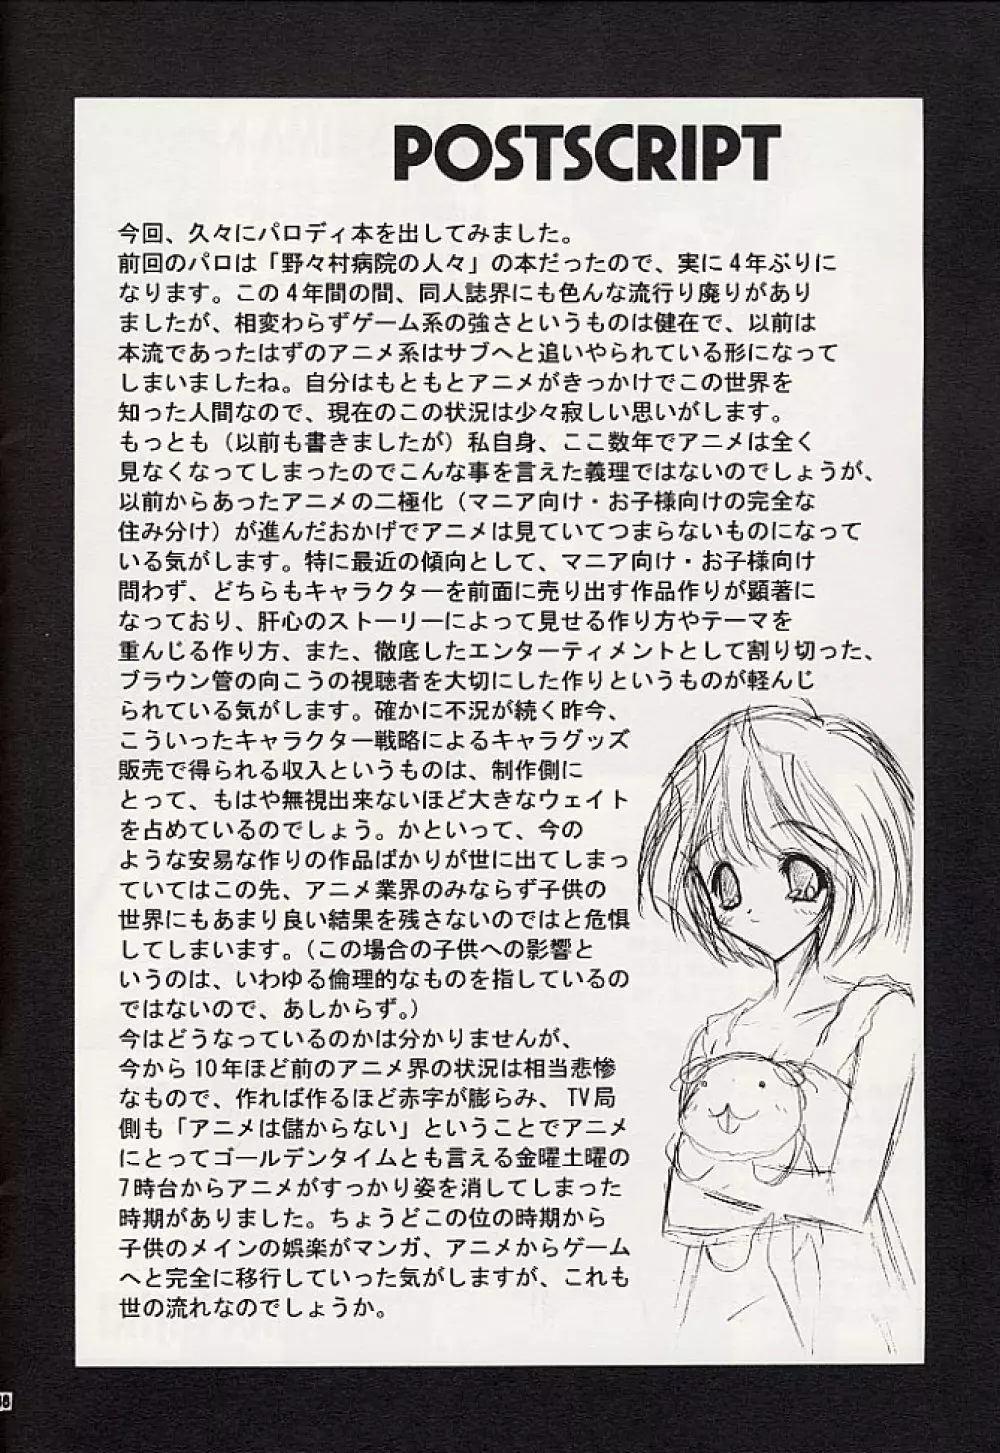 POSTSCRIPT
今回、久々にパロディ本を出してみました。
前回のパロは「野々村病院の人々」の本だったので、実に4年ぶりに
なります。この4年間の間、同人誌界にも色んな流行り廃りがあり
ましたが、相変わらずゲーム系の強さというものは健在で、以前は
本流であったはずのアニメ系はサブへと追いやられている形になって
しまいましたね。自分はもともとアニメがきっかけでこの世界を
知った人間なので、現在のこの状況は少々寂しい思いがします。
もっとも（以前も書きましたが）私自身、ここ数年でアニメは全く
見なくなってしまったのでこんな事を言えた義理ではないのでしょうが、
以前からあったアニメの二極化（マニア向け・お子様向けの完全な
住み分け）が進んだおかげでアニメは見ていてつまらないものになって
いる気がします。特に最近の傾向として、マニア向け・お子様向け
問わず、どちらもキャラクターを前面に売り出す作品作りが顕著に
なっており、肝心のストーリーによって見せる作り方やテーマを
重んじる作り方、また、徹底したエンターティメントとして割り切った、
ブラウン管の向こうの視聴者を大切にした作りというものが軽んじ
られている気がします。確かに不況が続く昨今、
こういったキャラクター戦略によるキャラグッズ
販売で得られる収入というものは、制作側に
とって、もはや無視出来ないほど大きなウェイト
を占めているのでしょう。かといって、今の
ような安易な作りの作品ばかりが世に出てしまっ
ていてはこの先、アニメ業界のみならず子供の
世界にもあまり良い結果を残さないのではと危惧
してしまいます。（この場合の子供への影響と
いうのは、いわゆる倫理的なものを指しているの
ではないので、あしからず。）
今はどうなっているのかは分かりませんが、
今から10年ほど前のアニメ界の状況は相当悲惨
なもので、作れば作るほど赤字が膨らみ、TV局
側も「アニメは儲からない」ということでアニメ
にとってゴールデンタイムとも言える金曜土曜の
7時台からアニメがすっかり姿を消してしまった
時期がありました。ちょうどこの位の時期から
子供のメインの娯楽がマンガ、アニメからゲーム
へと完全に移行していった気がしますが、これも
世の流れなのでしょうか。